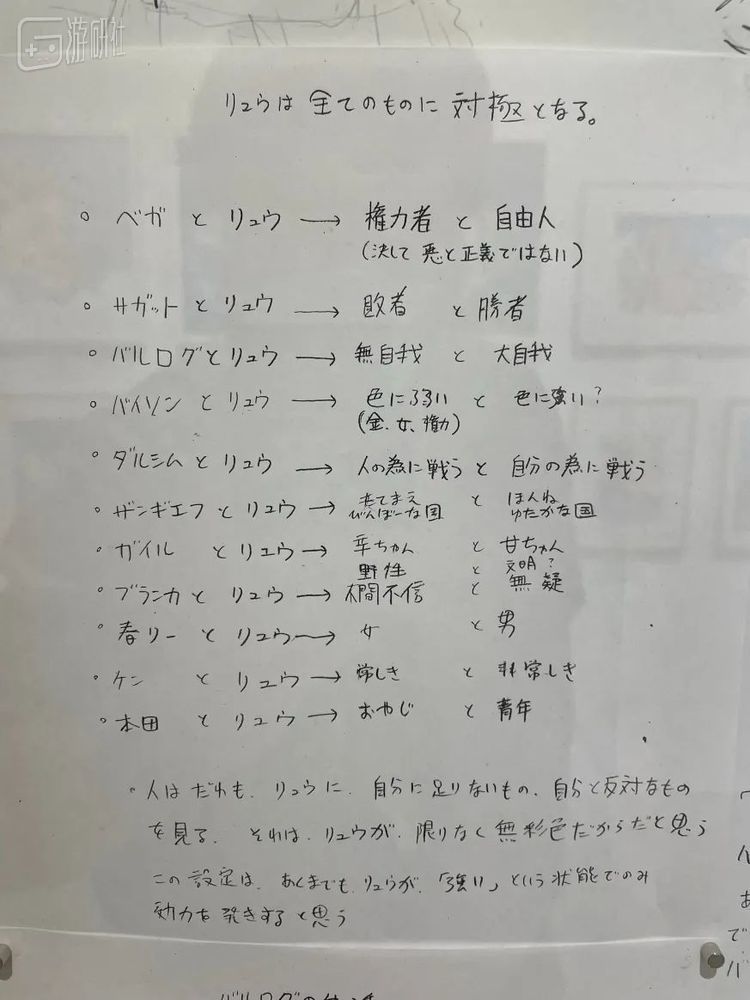 游研社
リュウは 全てのものに 対極となる。
○ ベガ と リュウ → 権力者 と 自由人
(決して 悪と正義ではない)
○ サガットとリュウ → 敗者 と 勝者
○ バルログとリュウ → 無自我 と 大自我
○ バイソン と リュウ → 色に弱い と 色に強い?
(金、女、権力)
○ ダルシムとリュウ → 人の為に戦う と 自分の為に戦う
○ ザンギエフとリュウ → たてまえ と ほんね
びんぼーな国 ゆたかな国
○ ガイル とリュウ → 辛ちゃん と 甘ちゃん
野性 と 文明?
○ ブランカと リュウ → 人間不信 と 無疑
○ 春リーとリュウ → 女 と 男
○ ケン とリュウ → 常しき と 非常しき
○ 本田 とリュウ → おやじ と 青年
○ 人は だれも、リュウに、自分に足りないもの、自分と反対なもの
を見る、それは、リュウが、限りなく無彩色だからだと思う
この設定は、あくまでも、リュウが、「強い」という状態でのみ
効力を発きすると思う